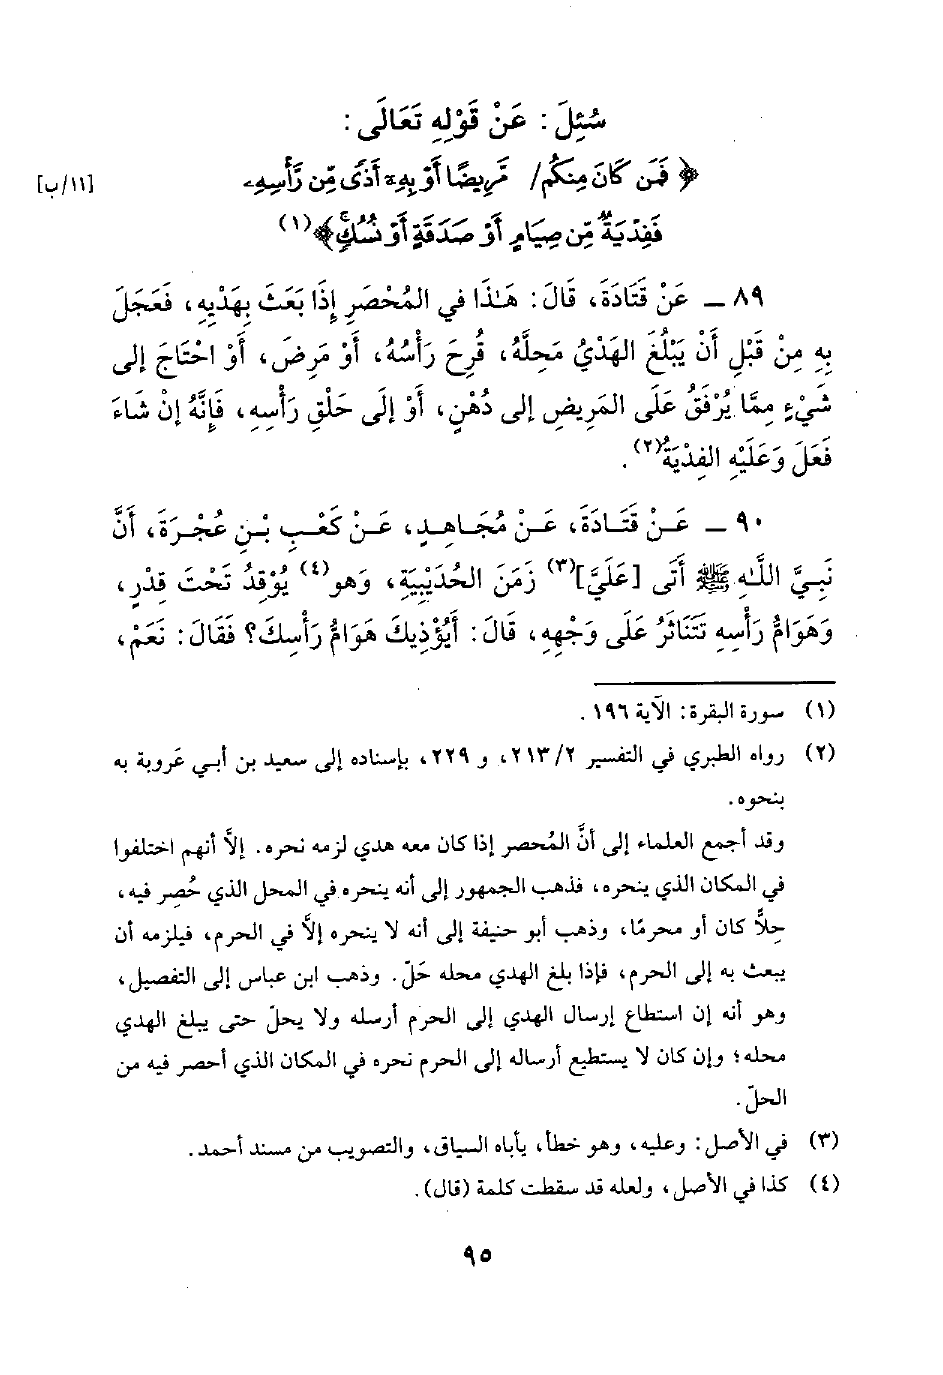 سُئِلَ: عَنْ قَوْلِهِ تَعَالَى:
﴿فَمَن كَانَ مِنكُم/ مَّرِيضًا أَوْ بِهِۦٓ أَذًى مِّن رَّأْسِهِۦ [١١/ب]
فَفِدْيَةٌ مِّن صِيَامٍ أَوْ صَدَقَةٍ أَوْ نُسُكٍ﴾(١)
٨٩ ــ عَنْ قَتَادَةَ، قَالَ: هَـٰذَا في المُحْصَرِ إِذَا بَعَثَ بِهَدْيِهِ، فَعَجَلَ
بِهِ مِنْ قَبْلِ أَنْ يَبْلُغَ الهَدْيُ مَحِلَّهُ، قُرِحَ رَأْسُهُ، أَوْ مَرِضَ، أَوْ احْتَاجَ إلى
شَيْءٍ مِمَّا يُرْفَقُ عَلَى المَرِيضِ إلى دُهْنٍ، أَوْ إلَى حَلْقِ رَأْسِهِ، فَإِنَّهُ إنْ شَاءَ
فَعَلَ وَعَلَيْهِ الفِدْيَةُ(٢).
٩٠ ــ عَـنْ قَتَـادَةَ، عَـنْ مُجَـاهِـدٍ، عَـنْ كَعْـبِ بْـنِ عُجْـرَةَ، أَنَّ
نَبِـيَّ اللَّـهِ ﷺ أَتَى [عَلَيَّ](٣) زَمَنَ الحُدَيْبِيَةِ، وَهو(٤) يُوْقِدُ تَحْتَ قِدْرٍ،
وَهَوَامُّ رَأْسِهِ تَتَنَاثَرُ عَلَى وَجْهِهِ، قَالَ: أَيُؤْذِيكَ هَوَامُّ رَأْسِكَ؟ فَقَالَ: نَعَمْ،
(١) سورة البقرة: الآية ١٩٦.
(٢) رواه الطبري في التفسير ٢/٢١٣، و ٢٢٩، بإسناده إلى سعيد بن أبـي عَروبة به
بنحوه.
وقد أجمع العلماء إلى أنَّ المُحصر إذا كان معه هدي لزمه نحره. إلاَّ أنهم اختلفوا
في المكان الذي ينحره، فذهب الجمهور إلى أنه ينحره في المحل الذي حُصِر فيه،
حِلاًّ كان أو محرمًا، وذهب أبو حنيفة إلى أنه لا ينحره إلاَّ في الحرم، فيلزمه أن
يبعث به إلى الحرم، فإذا بلغ الهدي محله حَلّ. وذهب ابن عباس إلى التفصيل،
وهو أنه إن استطاع إرسال الهدي إلى الحرم أرسله ولا يحلّ حتى يبلغ الهدي
محله؛ وإن كان لا يستطيع أرساله إلى الحرم نحره في المكان الذي أحصر فيه من
الحلّ.
(٣) في الأصل: وعليه، وهو خطأ، يأباه السياق، والتصويب من مسند أحمد.
(٤) كذا في الأصل، ولعله قد سقطت كلمة (قال).
٩٥